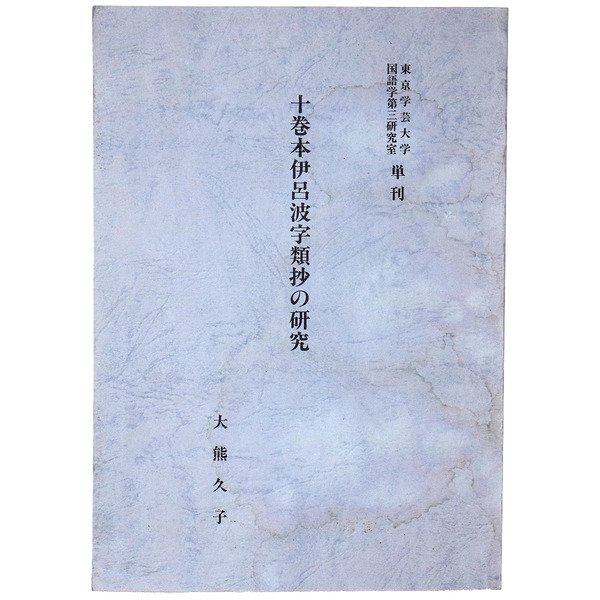 東京学芸大学
国語学第三研究室 単刊
十巻本伊呂波字類抄の研究
大熊久子